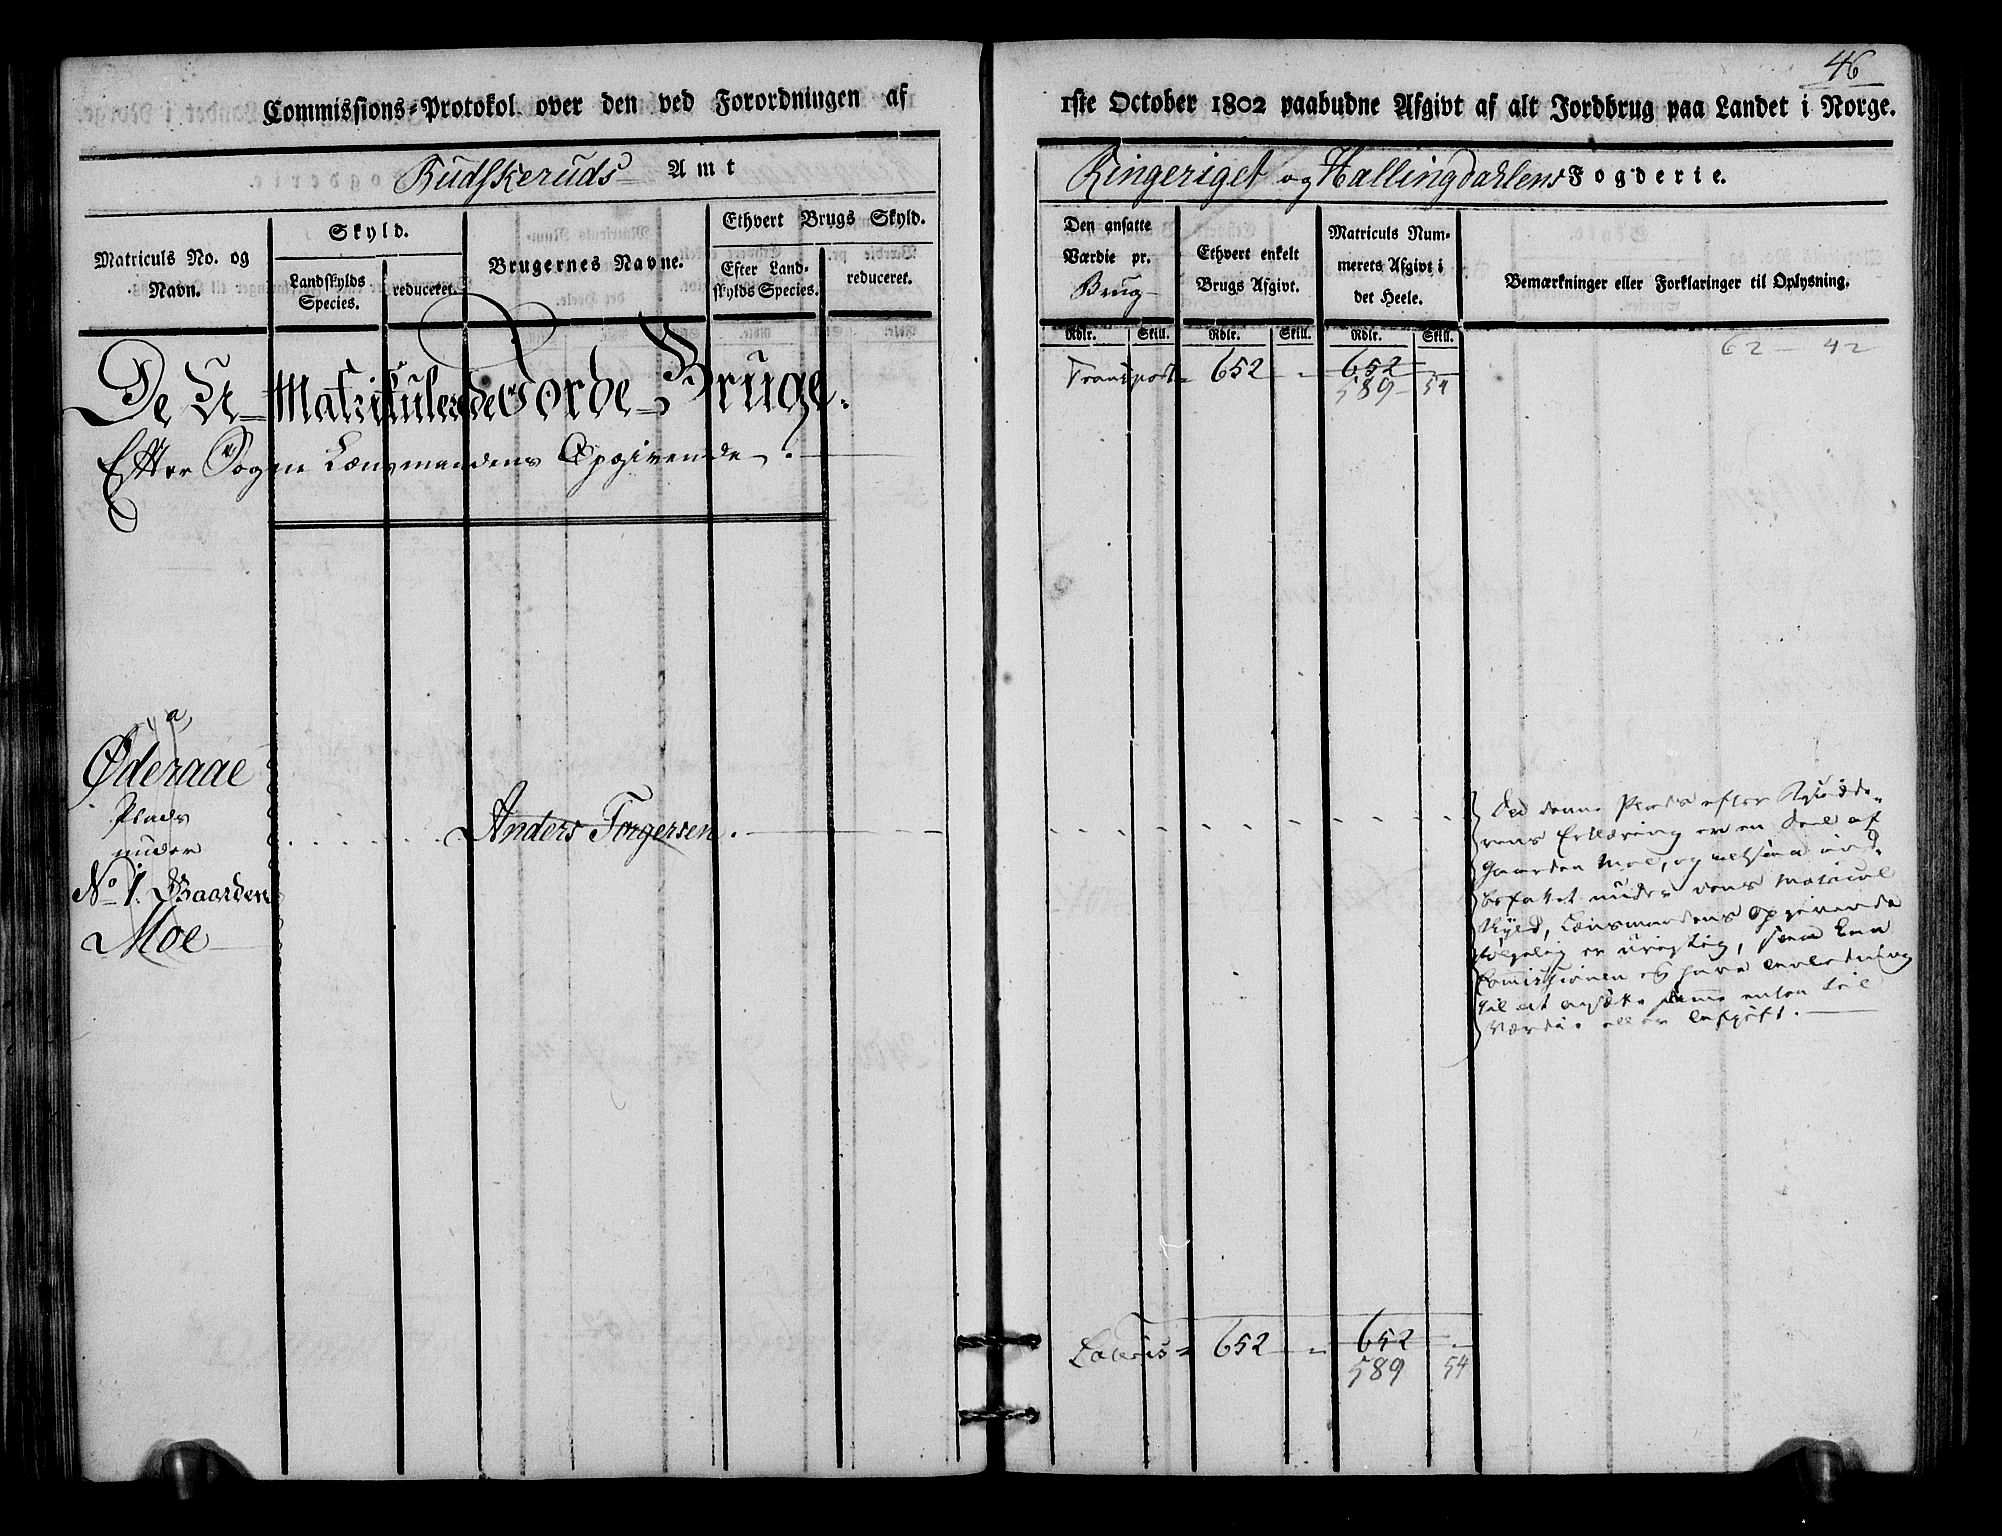 46
Commissions-Protokol over den ved Forordningen af 1ste October 1802 paabudne Afgivt af alt Jordbrug paa Landet i Norge.
Budskeruds Amt
Ringeriget og Hallingdahlens Fogderie.
Matriculs No. og Navn.
Skyld.
Landskylds Species.
reduceret.
Brugernes Navne.
Ethvert Brugs Skyld.
Efter Landskylds Species.
reduceret.
Den ansatte Værdie pr. Brug
Ethvert enkelt Brugs Afgivt.
Matriculs Nummerets Afgivt i det Heele.
Bemærkninger eller Forklaringer til Oplysning.
Rdlr. Skill. Rdlr. Skill. Rdlr. Skill.
62 - 42
Transport = 652 - 652 -
589 - 54
De U-Matriculerede Jorde-Bruge.
Efter Sogne Lænsmandens Opgivende.
a,
Øderaae
Plads
under
No 1. Gaarden
Moe
Anders Torgersen.
Ved denne Plads efter
rens Erklæring er en Deel af
Gaarden Moe, og altsaa ind-
befattet under dens Matricul
Skyld, Lænsmandens opgivende
følgelig er urigtig, saa kan
Commissionen ej have Anledning
til at ansætte samme enten til
Værdie eller Afgift.
Lateris = 652 - 652 -
589 54